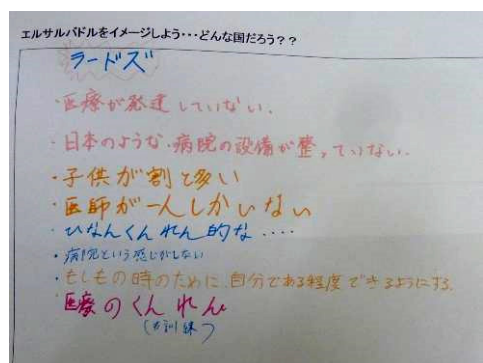 エルサルバドルをイメージしよう・・・どんな国だろう？？
ラードズ
・医療が発達していない.
・日本のような・病院の設備が整っていない.
・子供が割と多い
・医師が一人しかいない
・ひなんくんれん的な‥‥
・病院という感じがしない
・もしもの時のために、自分である程度できるようにする.
医療のくんれん
(訓練)